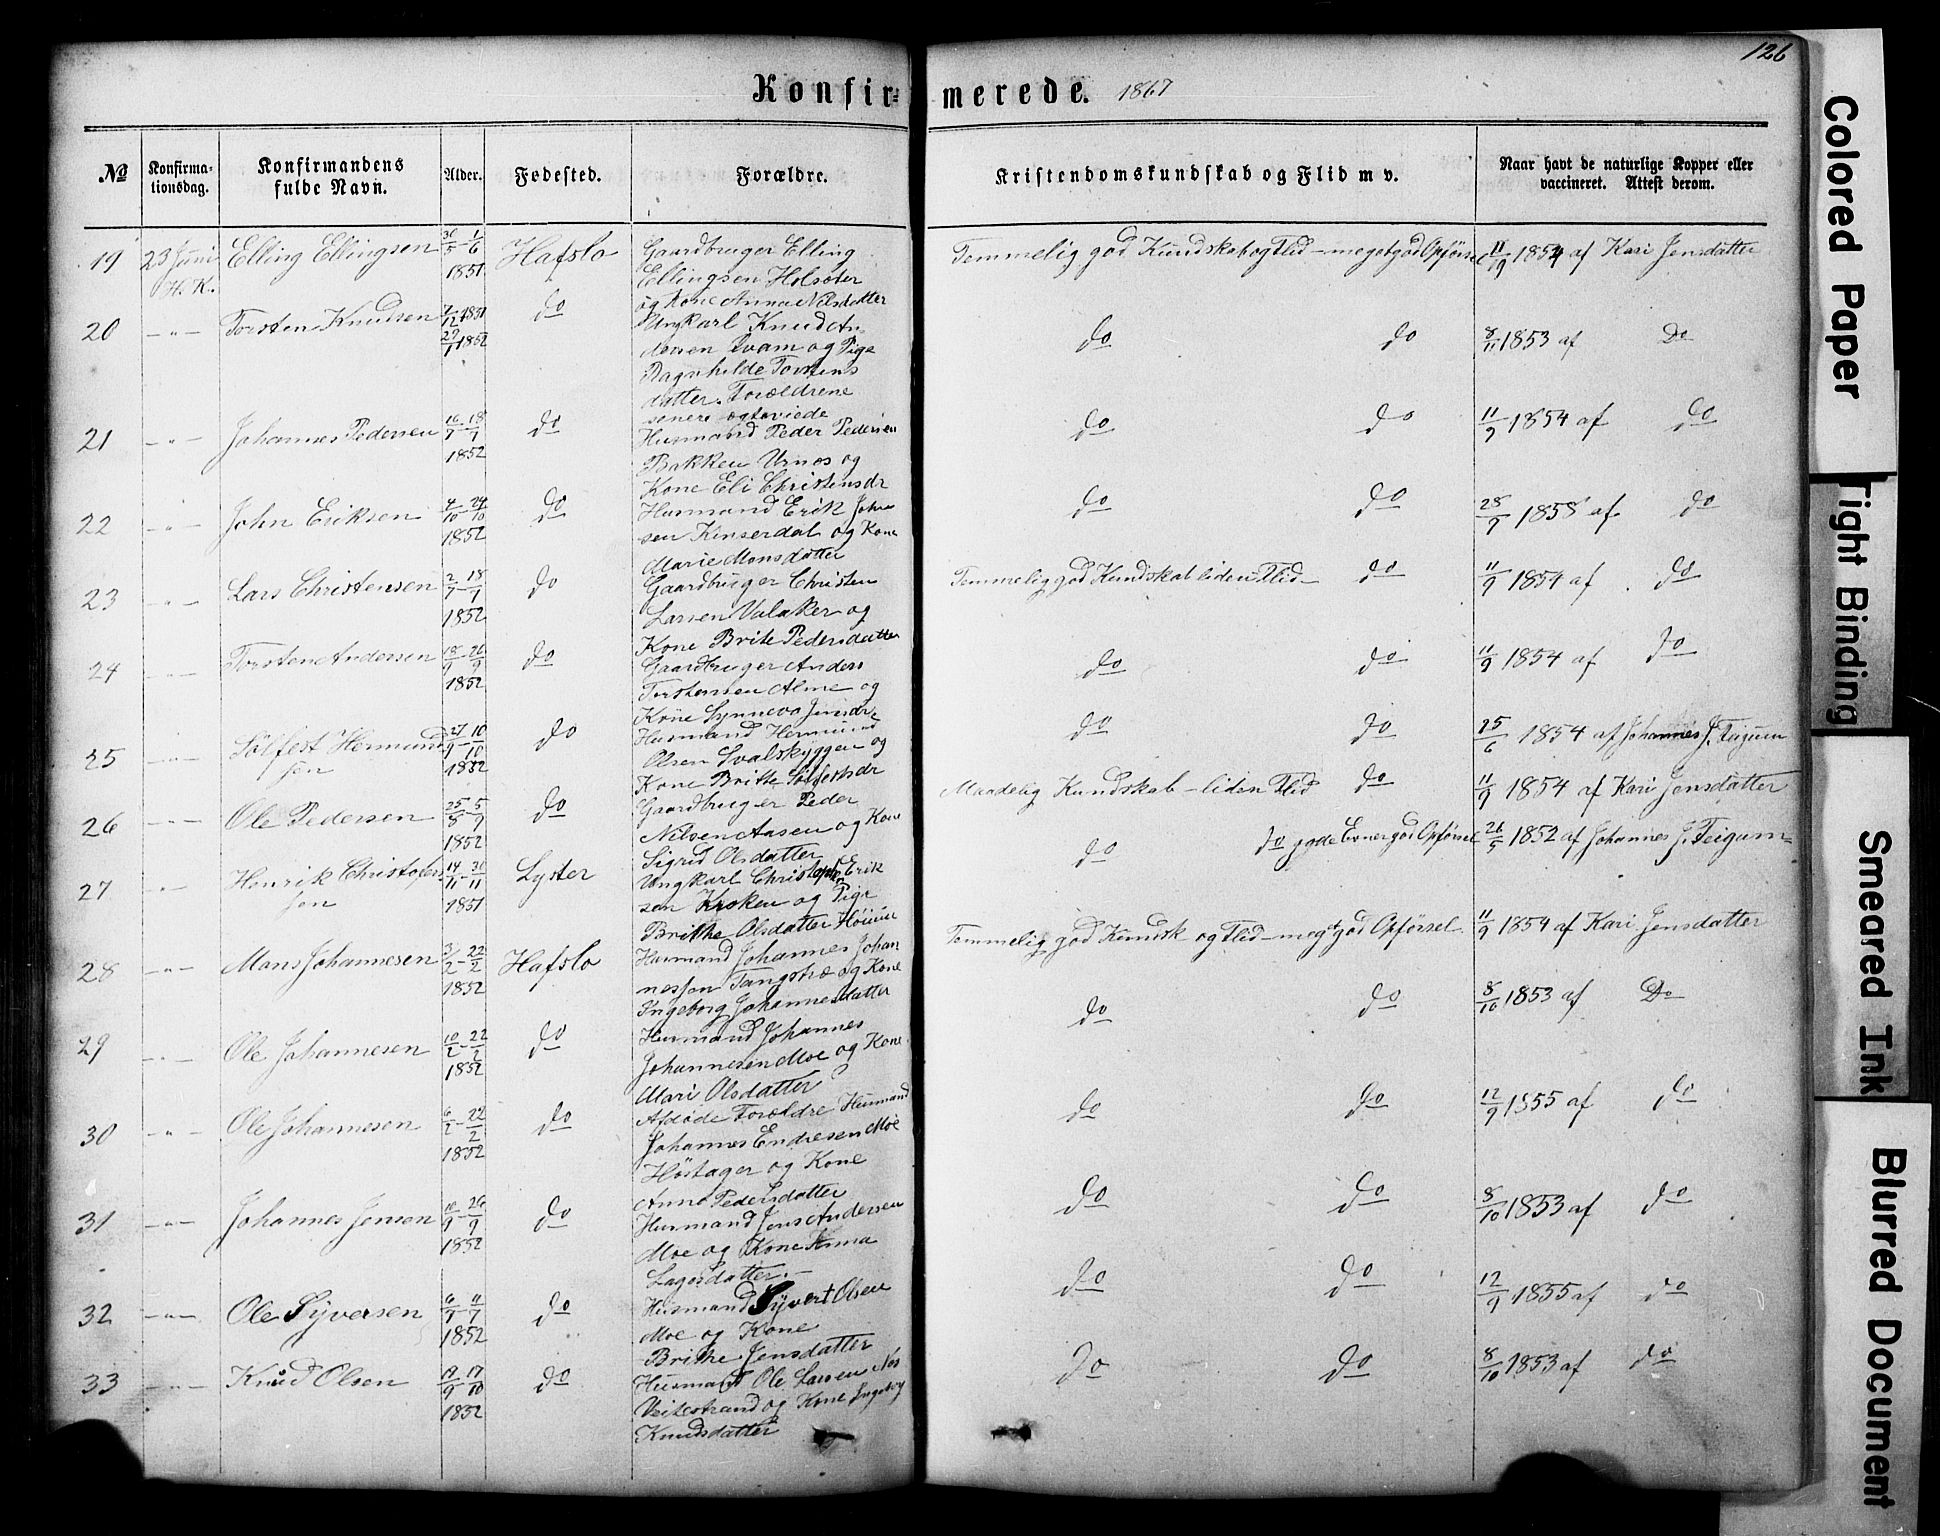 126
Konfir=merede. 1867
No
Konfirma-
tionsdag.
Konfirmandens
fulde Navn.
Alder.
Fødested.
Forældre.
Kristendomskundskab og Flid m v.
Naar havt de naturlige Kopper eller
vaccineret. Attest derom.
19 23 Juni Elling Ellingsen 30/5 - 1/6 Hafslo Gaardbruger Elling Temmelig god Kundskab og Flid - meget god Opførsel 11/9 1854 af Kari Jensdatter
H. K. 1851 Ellingsen Holsæter
og Kone Anna Nilsdatter
20 -"- Torsten Knudsen 7/12 1851 do Ungkarl Knud An- do do 8/11 1853 af Do
27/1 1852 dersen Kvam og Pige
Ragnhilde Torstens
datter. Forældrene
senere ægteviede
21 -"- Johannes Pedersen 16/7 - 18/7 do Husmand Peder Pedersen do do 11/9 1854 af do
1852 Bakken Urnes og
Kone Eli Christensdr
22 -"- John Eriksen 4/10 - 24/10 do Husmand Erik John do do 28/9 1858 af do
1852 sen Kinserdal og Kone
Marie Monsdatter
23 -"- Lars Christensen 2/7 - 18/7 do Gaardbruger Christen Temmelig god Kundskab liden Flid - do 11/9 1854 af do
1852 Larsen Valaker og
Kone Brite Pedersdatter
24 -"- Torsten Andersen 18/9 - 26/9 do Gaardbruger Anders do do 11/9 1854 af do
1852 Torstensen Alme og
Kone Synneva Jensdr
25 -"- Sølfest Hermund 27/9 - 10/10 do Husmand Hermund do do 25/6 1854 af Johannes J. Teigum
sen 1852 Olsen Svalskyggen og
Kone Britte Sølfestsdr
26 -"- Ole Pedersen 25/8 - 5/9 do Gaardbruger Peder Maadelig Kundskab - liden Flid do 11/9 1854 af Kari Jensdatter
1852 Nilsen Aasen og Kone
Sigrid Olsdatter
27 -"- Henrik Christofer 14/11 - 30/11 Lyster Ungkarl Christopher Erik do do gode Evner god Opførsel 26/5 1852 af Johannes J. Teigum -
sen 1851 sen Kroken og Pige
Brithe Olsdatter
28 -"- Mons Johannesen 3/2 - 22/2 Hafslo Husmand Johannes Johan Temmelig god Kundsk og Flid - meget god Opførsel 11/9 1854 af Kari Jensdatter
1852 nessen Tangstræ og Kone
Ingeborg Johannesdatter
29 -"- Ole Johannesen 10/2 - 22/2 do Husmand Johannes do do 8/10 1853 af Do
1852 Johannesen Moe og Kone
Mari Olsdatter
30 -"- Ole Johannesen 6/2 - 22/2 do Afdøde Forældre Husmand do do 12/9 1855 af do
1852 Johannes Endresen Moe
Høstager og Kone
Anne Pedersdatter
31 -"- Johannes Jensen 10/9 - 26/9 do Husmand Jens Andersen do do 8/10 1853 af do
1852 Moe og Kone Anna
Lagesdatter. -
32 -"- Ole Syversen 6/7 - 11/7 do Husmand Syvert Olsen do do 12/9 1855 af do
1852 Moe og Kone
Brithe Jensdatter
33 -"- Knud Olsen 19/9 - 17/10 do Husmand Ole Larsen Nes do do 8/10 1853 af do
1852 Veitestrand og Kone Ingeborg
Knudsdatter
Colored Paper
Tight Binding
Smeared Ink
Blurred Document